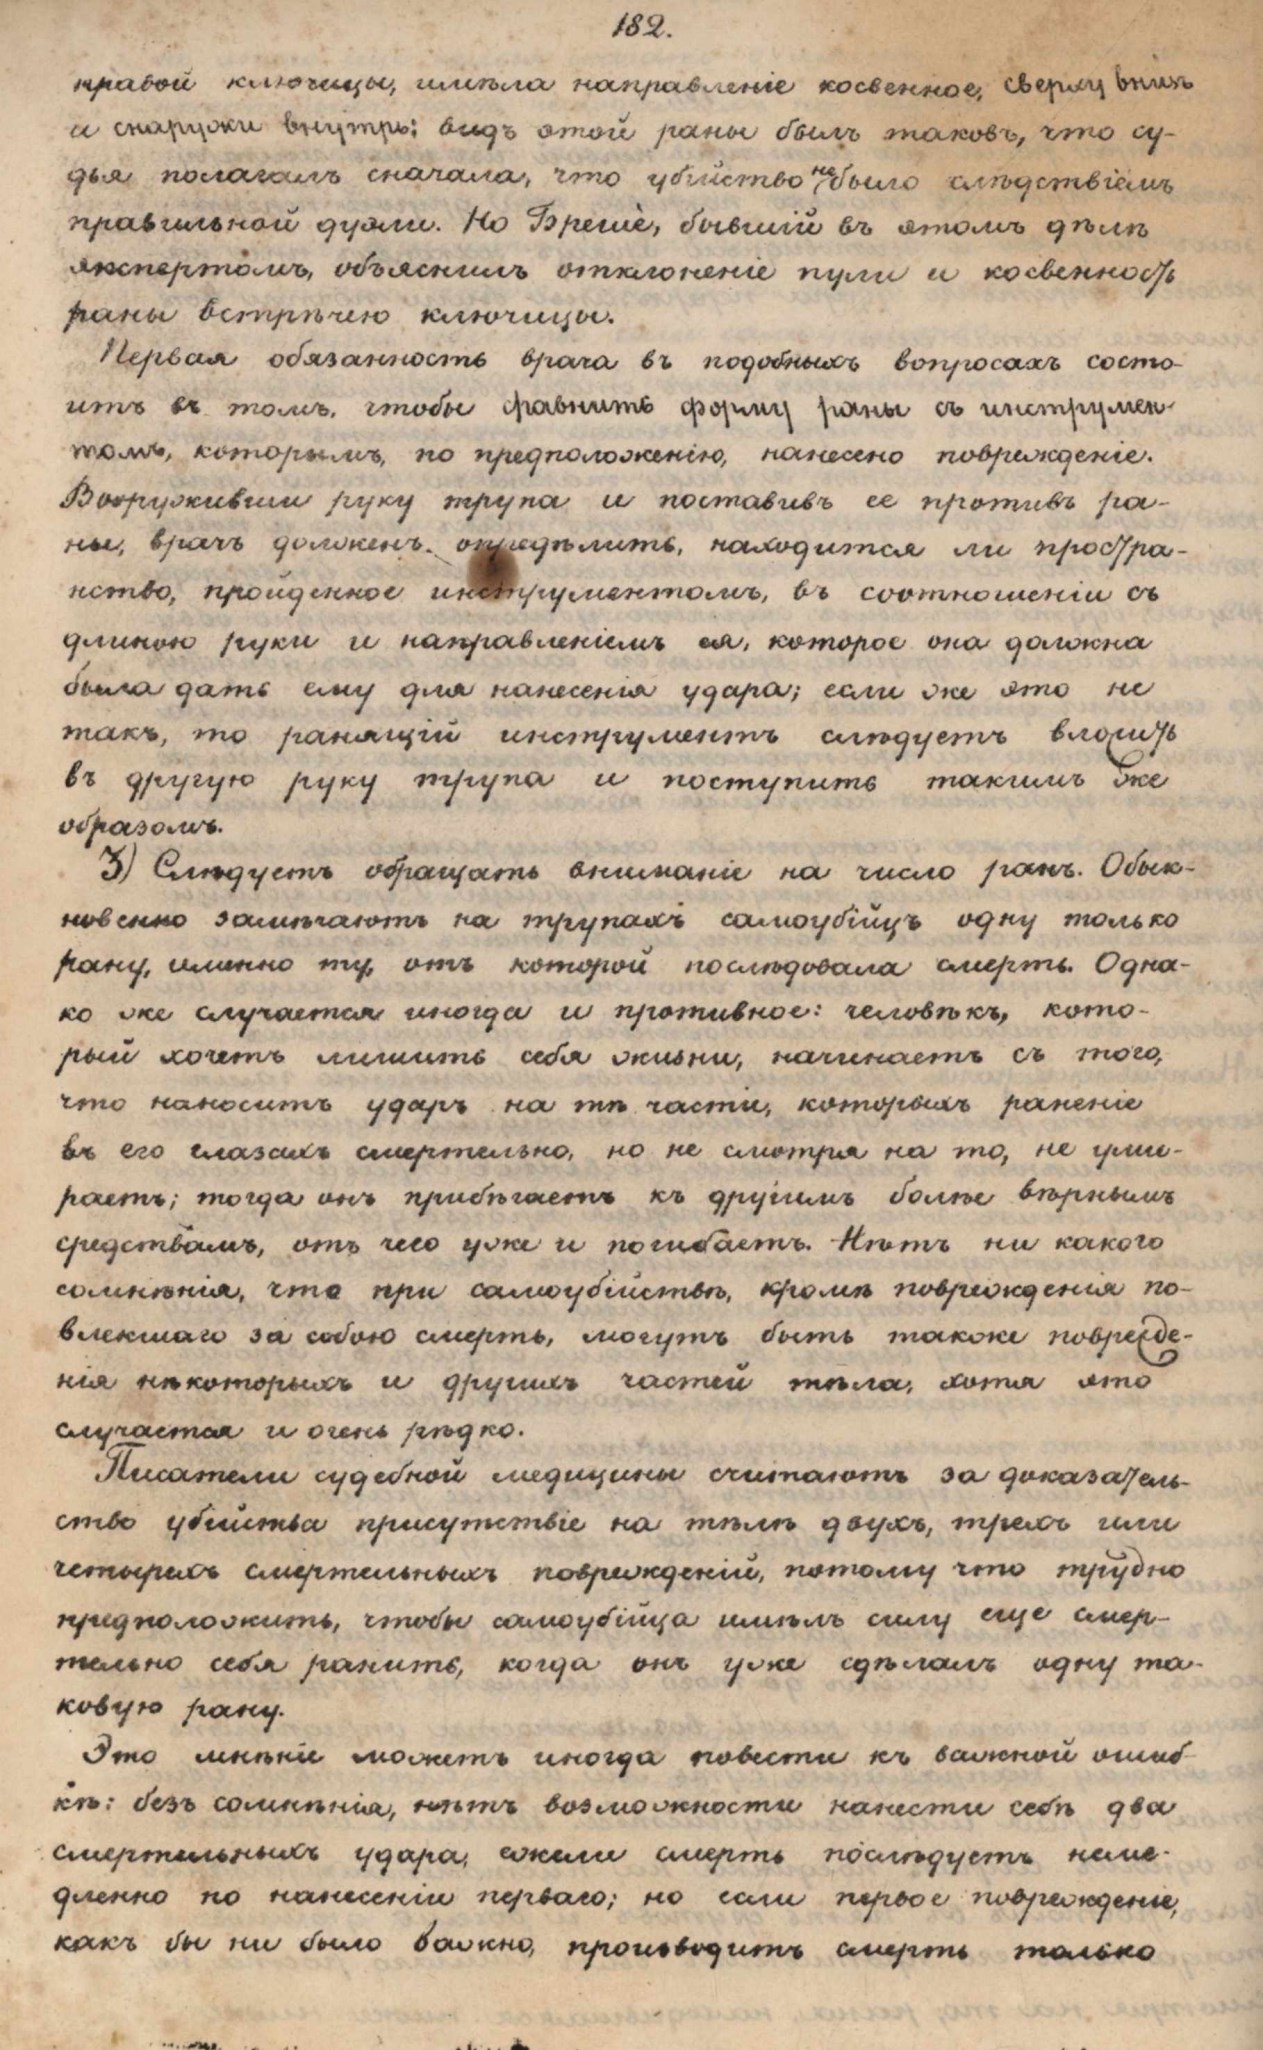 182.
правой ключицы, имѣла направленіе косвенное, сверху внизъ
и снаружи внутрь; видъ этой раны былъ таковъ, что су-
дья полагалъ сначала, что убійство не было слѣдствіемъ
правильной дуэли. Но Брешé, бывшій въ этомъ дѣлѣ
экспертомъ, объяснилъ отклоненіе пули и косвенность
раны встрѣчею ключицы.
Первая обязанность врача въ подобныхъ вопросахъ состо-
итъ въ томъ, чтобы сравнить форму раны съ инструмен-
томъ, которымъ, по предположенію, нанесено поврежденіе.
Вооруживши руку трупа и поставивъ ее противъ ра-
ны, врачъ долженъ опредѣлить, находится ли простра-
нство, пройденное инструментомъ, въ соотношеніи съ
длиною руки и направленіемъ ея, которое она должна
была дать ему для нанесенія удара; если же это не
такъ, то ранящій инструментъ слѣдуетъ вложить
въ другую руку трупа и поступить такимъ же
образомъ.
3) Слѣдуетъ обращать вниманіе на число ранъ. Обык-
новенно замѣчаютъ на трупахъ самоубійцъ одну только
рану, именно ту, отъ которой послѣдовала смерть. Одна-
ко же случается иногда и противное: человѣкъ, кото-
рый хочетъ лишить себя жизни, начинаетъ съ того,
что наноситъ ударъ на тѣ части, которыхъ раненіе
въ его глазахъ смертельно, но не смотря на то, не уми-
раетъ; тогда онъ прибѣгаетъ къ другимъ болѣе вѣрнымъ
средствамъ, отъ чего уже и погибаетъ. Нѣтъ ни какого
сомнѣнія, что при самоубійствѣ, кромѣ поврежденія по-
влекшаго за собою смерть, могутъ быть также поврежде-
нія нѣкоторыхъ и другихъ частей тѣла, хотя это
случается и очень рѣдко.
Писатели судебной медицины считаютъ за доказатель-
ство убійства присутствіе на тѣлѣ двухъ, трехъ или
четырехъ смертельныхъ поврежденій, потому что трудно
предположить, чтобы самоубійца имѣлъ силу еще смер-
тельно себя ранить, когда онъ уже сдѣлалъ одну та-
ковую рану.
Это мнѣніе можетъ иногда повести къ важной ошиб-
кѣ: безъ сомнѣнія, нѣтъ возможности нанести себѣ два
смертельныхъ удара, ежели смерть послѣдуетъ неме-
дленно по нанесеніи перваго; но если первое поврежденіе,
какъ бы ни было важно, производитъ смерть только